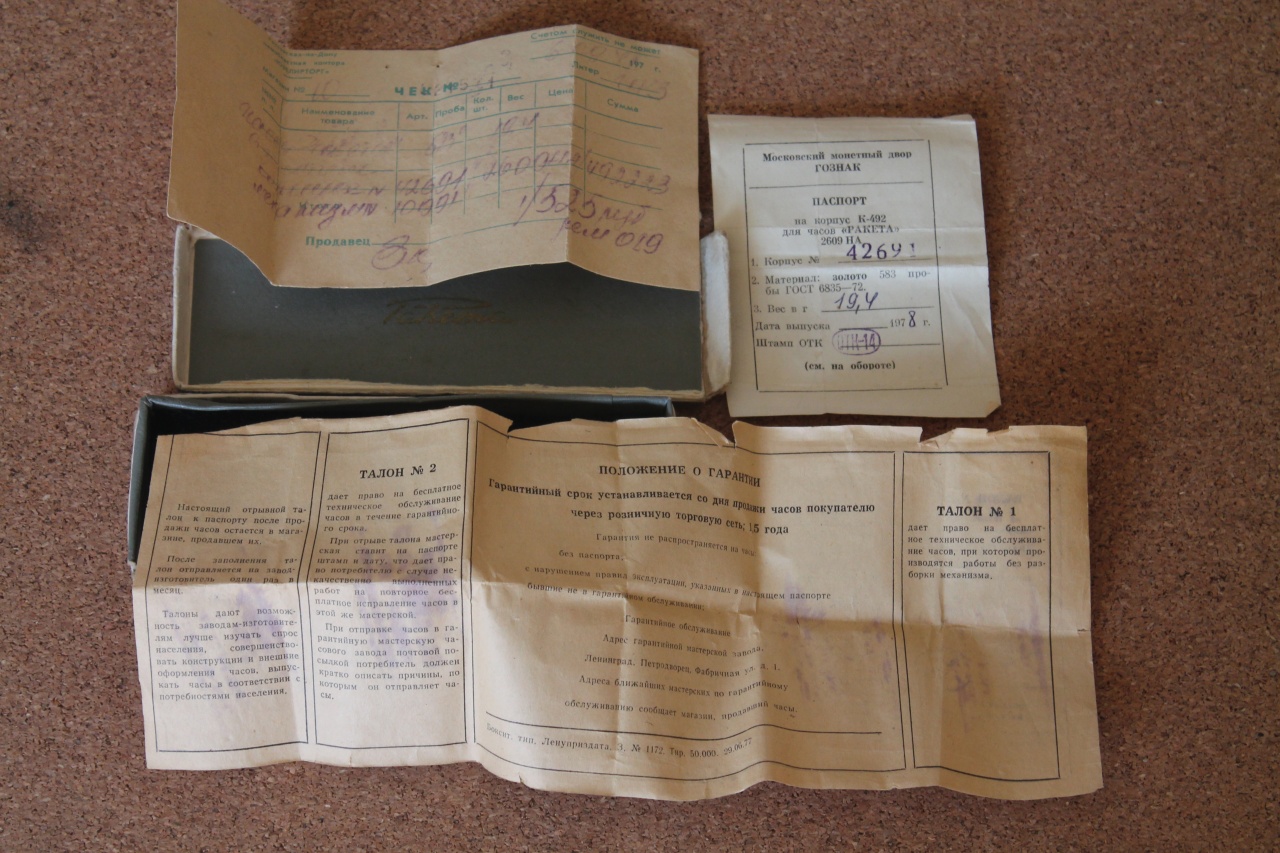 Счетом служить не может
197 г.
ЧЕК №
Литер
Наименование товара
Арт.
Проба
Кол. шт.
Вес
Цена
Сумма
Продавец
Московский монетный двор
ГОЗНАК
ПАСПОРТ
на корпус К-492
для часов «РАКЕТА»
2609 НА
1. Корпус № 42691
2. Материал: золото 583 про-
бы ГОСТ 6835—72.
3. Вес в г 19,4
Дата выпуска 1978 г.
Штамп ОТК ОТК-14
(см. на обороте)
Настоящий отрывной та-
лон к паспорту после про-
дажи часов остается в мага-
зине, продавшем их.
После заполнения та-
лон отправляется на завод-
изготовитель один раз в
месяц.
Талоны дают возмож-
ность заводам-изготовите-
лям лучше изучать спрос
населения, совершенство-
вать конструкции и внешние
оформления часов, выпус-
кать часы в соответствии с
потребностями населения.
ТАЛОН № 2
дает право на бесплатное
техническое обслуживание
часов в течение гарантийно-
го срока.
При отрыве талона мастер-
ская ставит на паспорте
штамп и дату, что дает пра-
во потребителю в случае не-
качественно выполненных
работ на повторное бес-
платное исправление часов в
этой же мастерской.
При отправке часов в га-
рантийную мастерскую ча-
сового завода почтовой по-
сылкой потребитель должен
кратко описать причины, по
которым он отправляет ча-
сы.
ПОЛОЖЕНИЕ О ГАРАНТИИ
Гарантийный срок устанавливается со дня продажи часов покупателю
через розничную торговую сеть; 1,5 года
Гарантия не распространяется на часы:
без паспорта;
с нарушением правил эксплуатации, указанных в настоящем паспорте
бывшие не в гарантийном обслуживании;
Гарантийное обслуживание
Адрес гарантийной мастерской завода.
Ленинград. Петродворец, Фабричная ул. д. 1.
Адреса ближайших мастерских по гарантийному
обслуживанию сообщает магазин, продавший часы.
Боксит. тип. Ленуприздата. З. № 1172 Тир. 50.000. 29.06.77
ТАЛОН № 1
дает право на бесплат-
ное техническое обслужива-
ние часов, при котором про-
изводятся работы без раз-
борки механизма.